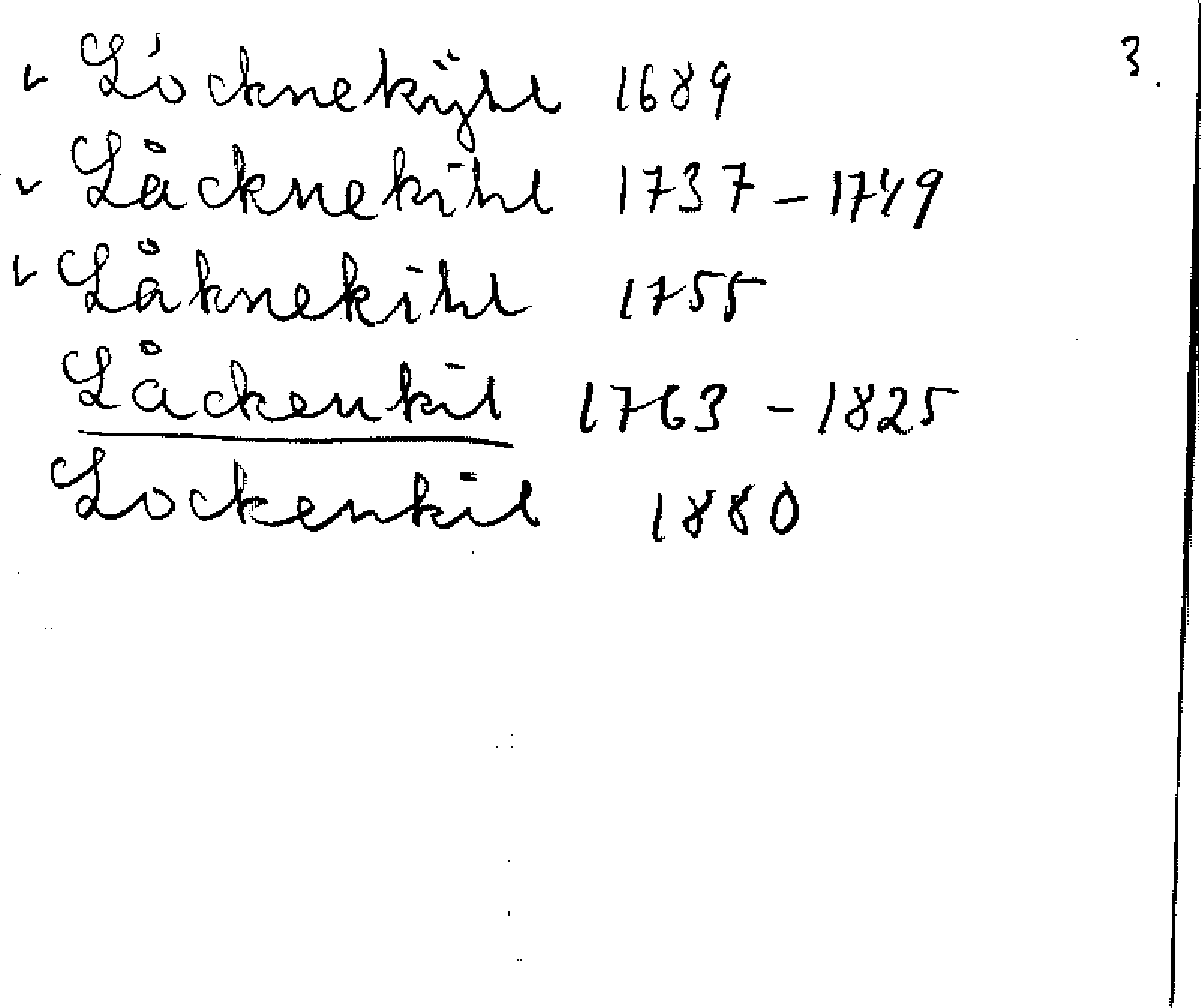 3.
✓ Lócknekÿhl 1689
✓ Låcknekihl 1737 – 1749
✓ Låknekihl 1755
Låckenkil 1763 – 1825
Lockenkil 1880